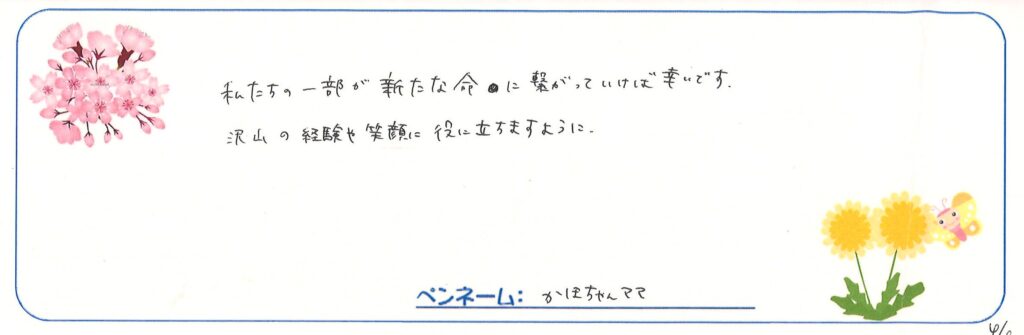 私たちの一部が新たな命に繋がっていけば幸いです.
沢山の経験や笑顔に役に立ちますように.
ペンネーム: かほちゃんママ